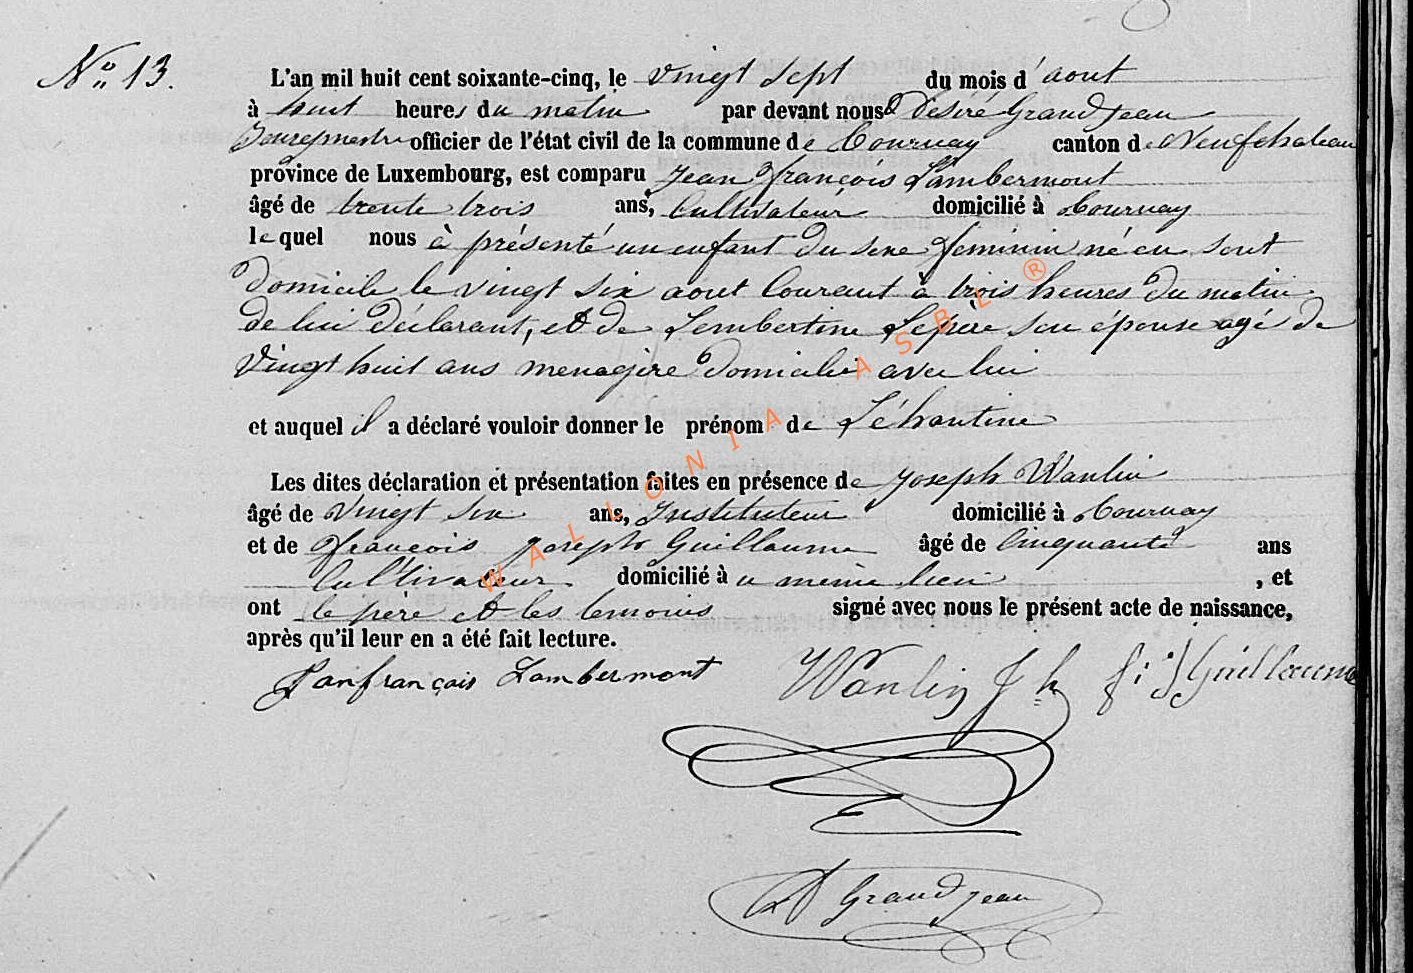 N° 13.
L'an mil huit cent soixante-cinq, le vingt sept du mois d'aout
à huit heures du matin par devant nous Désiré Grandjean
Bourgmestre officier de l'état civil de la commune de Tournay canton de Neufchateau
province de Luxembourg, est comparu Jean François Lambermont
âgé de trente trois ans, Cultivateur domicilié à Tournay
lequel nous à présenté un enfant du sexe feminin né en sont
domicile le vingt six aout Courant à trois heures du matin
de lui Déclarant, et de Lembertine Lepère son épouse agé de
vingt huit ans menagère domicilié avec lui
et auquel il a déclaré vouloir donner le prénom de Léhontine
Les dites déclaration et présentation faites en présence de Joseph Wanlin
âgé de vingt six ans, Instituteur domicilié à Tournay
et de François Joseph Guillaume âgé de Cinquante ans
Cultivateur domicilié à u même lieu , et
ont le père et les temoins signé avec nous le présent acte de naissance,
après qu'il leur en a été fait lecture.
Janfrançois Lambermont Wanlin Jh f: J Guillaume
D Grandjean
WALLONIA ASBL ®